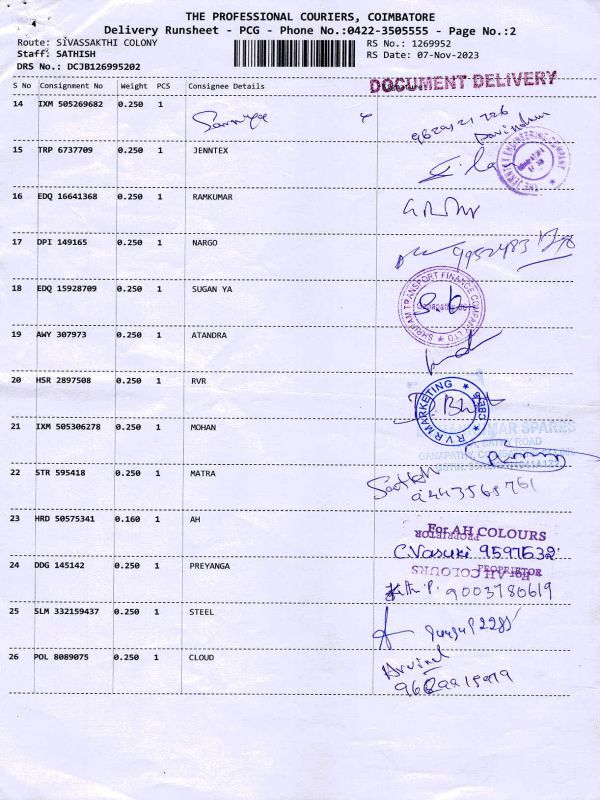 THE PROFESSIONAL COURIERS, COIMBATORE
Delivery Runsheet - PCG - Phone No.:0422-3505555 - Page No.:2
Route: SIVASSAKTHI COLONY RS No.: 1269952
Staff: SATHISH RS Date: 07-Nov-2023
DRS No.: DCJB126995202
DOCUMENT DELIVERY
S No Consignment No Weight PCS Consignee Details
14 IXM 505269682 0.250 1
15 TRP 6737709 0.250 1 JENNTEX
16 EDQ 16641368 0.250 1 RAMKUMAR
17 DPI 149165 0.250 1 NARGO
18 EDQ 15928709 0.250 1 SUGAN YA
SHRIRAM TRANSPORT FINANCE COMPANY LTD
19 AWY 307973 0.250 1 ATANDRA
20 HSR 2897508 0.250 1 RVR
RVR MARKETING CBE-6
21 IXM 505306278 0.250 1 MOHAN
22 STR 595418 0.250 1 MATRA
Sathish
9443568761
23 HRD 50575341 0.160 1 AH
For AH COLOURS
PROPRIETOR
C.Vasuki 9597532
24 DDG 145142 0.250 1 PREYANGA
For AH COLOURS
PROPRIETOR
9003780619
25 SLM 332159437 0.250 1 STEEL
26 POL 8089075 0.250 1 CLOUD
Arvind